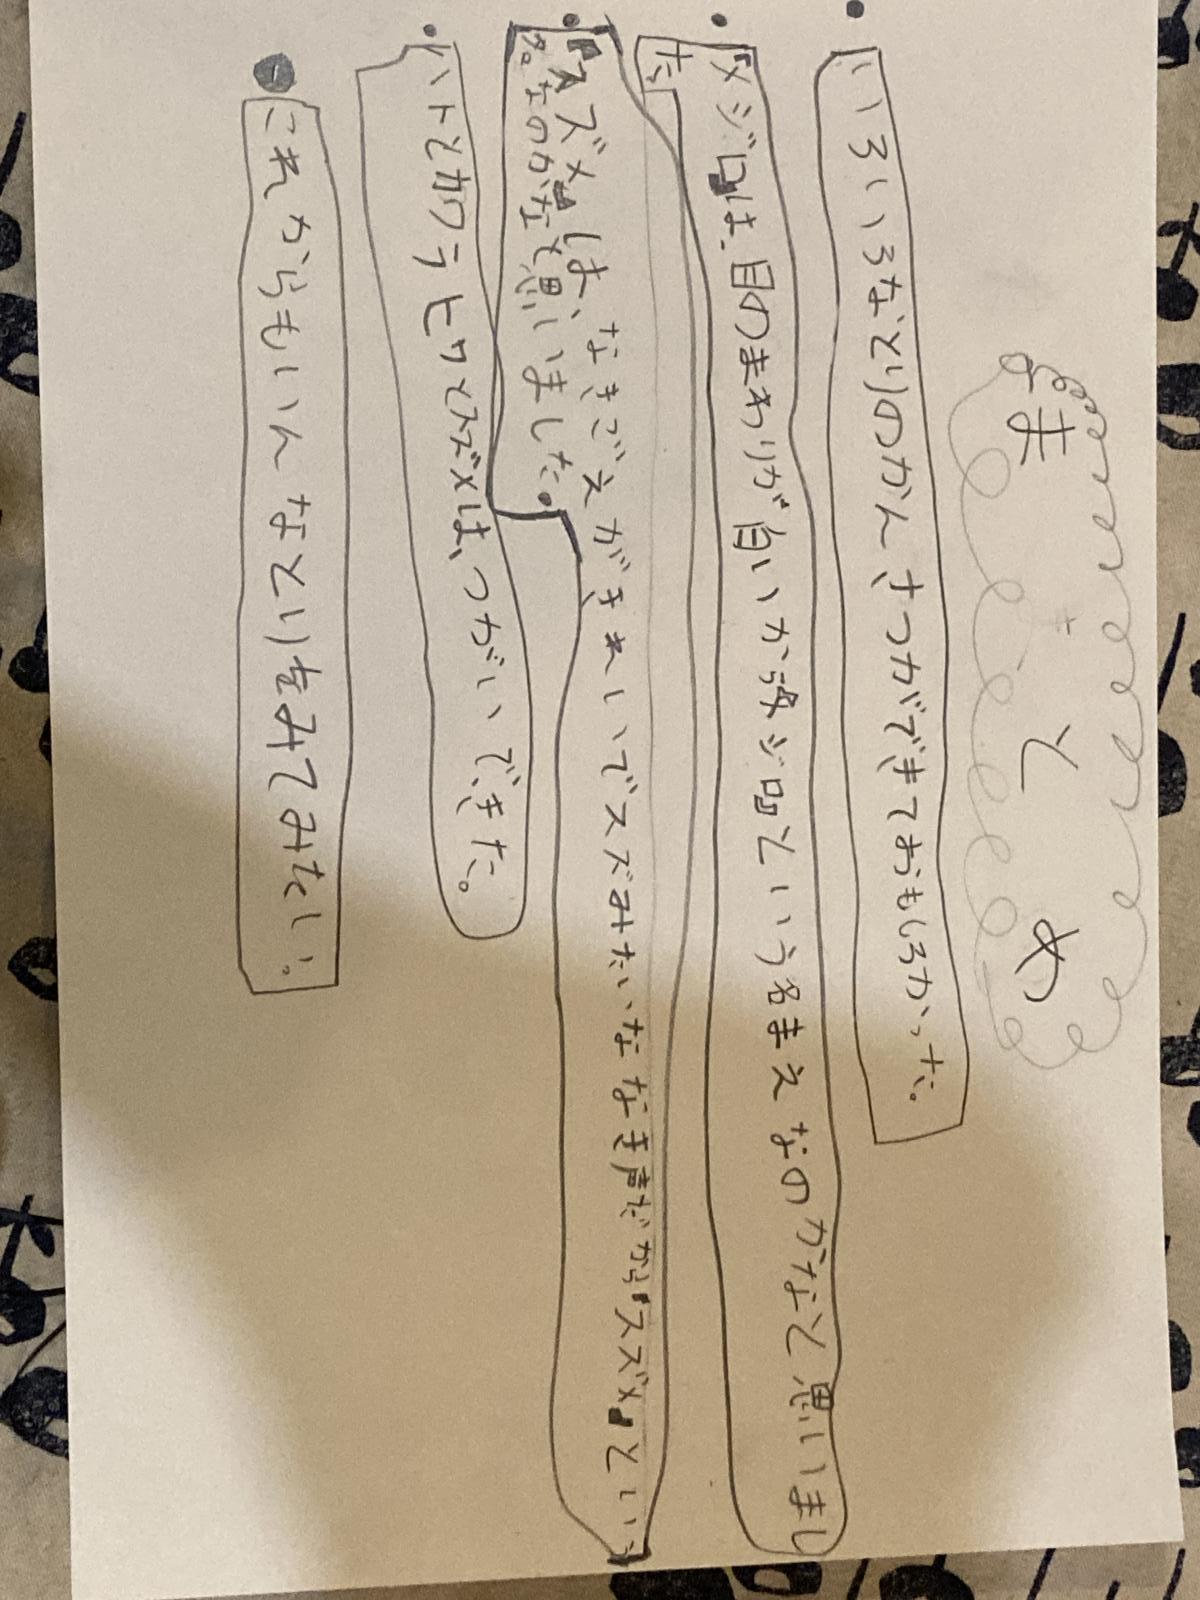 まとめ
・いろいろなとりのかんさつができておもしろかった。
・『メジロ』は、目のまわりが白いから『メジロ』という名まえなのかなと思いまし
た。
・『スズメ』は、なきごえがきれいでスズみたいななき声だから『スズメ』という
名。なのかなと思いました。
・ハトとカワラヒワとスズメは、つがいできた。
・これからもいんなとりをみてみたい。